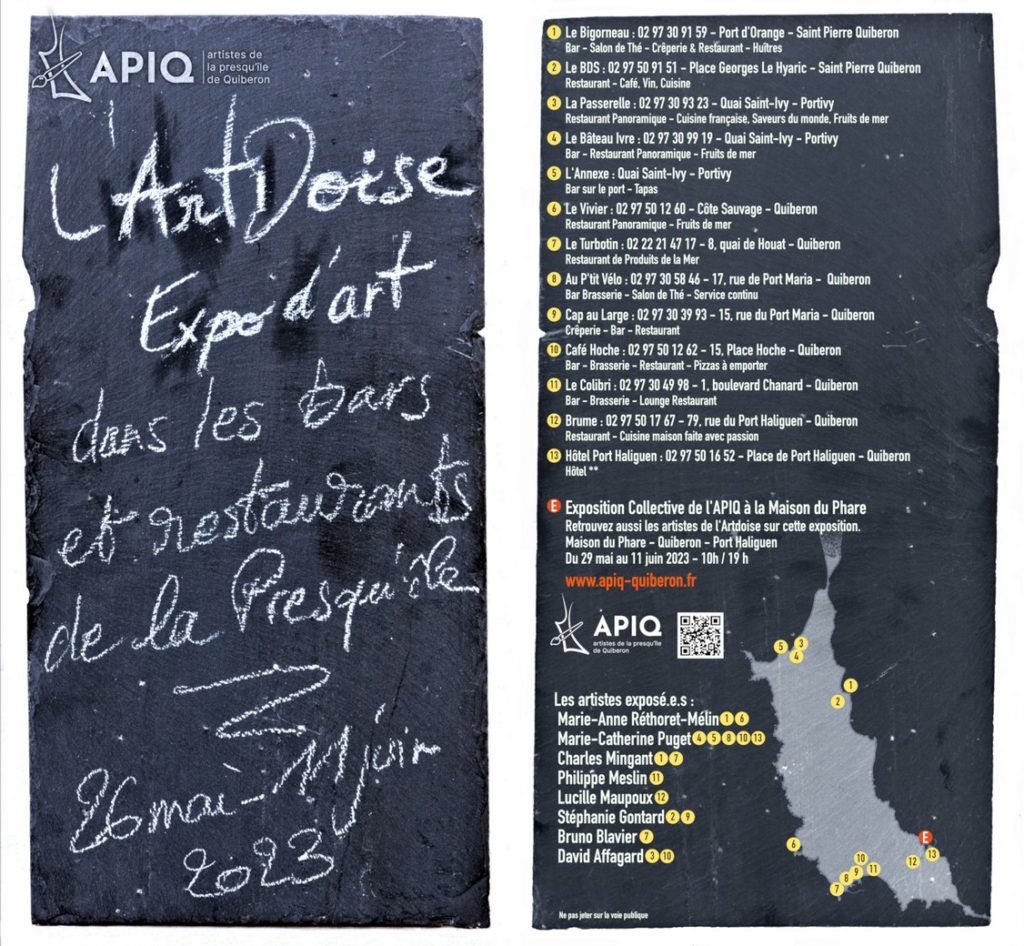 APIQ
artistes de
la presqu'île
de Quiberon
L'ArtDoise
Expo d'art
dans les bars
et restaurants
de la Presqu'île
26 mai - 11 juin
2023
1 Le Bigorneau : 02 97 30 91 59 - Port d'Orange - Saint Pierre Quiberon
Bar - Salon de Thé - Crêperie & Restaurant - Huîtres
2 Le BDS : 02 97 50 91 51 - Place Georges Le Hyaric - Saint Pierre Quiberon
Restaurant - Café, Vin, Cuisine
3 La Passerelle : 02 97 30 93 23 - Quai Saint-Ivy - Portivy
Restaurant Panoramique - Cuisine française, Saveurs du monde, Fruits de mer
4 Le Bâteau Ivre : 02 97 30 99 19 - Quai Saint-Ivy - Portivy
Bar - Restaurant Panoramique - Fruits de mer
5 L'Annexe : Quai Saint-Ivy - Portivy
Bar sur le port - Tapas
6 Le Vivier : 02 97 50 12 60 - Côte Sauvage - Quiberon
Restaurant Panoramique - Fruits de mer
7 Le Turbotin : 02 22 21 47 17 - 8, quai de Houat - Quiberon
Restaurant de Produits de la Mer
8 Au P'tit Vélo : 02 97 30 58 46 - 17, rue de Port Maria - Quiberon
Bar Brasserie - Salon de Thé - Service continu
9 Cap au Large : 02 97 30 39 93 - 15, rue du Port Maria - Quiberon
Crêperie - Bar - Restaurant
10 Café Hoche : 02 97 50 12 62 - 15, Place Hoche - Quiberon
Bar - Brasserie - Restaurant - Pizzas à emporter
11 Le Colibri : 02 97 30 49 98 - 1, boulevard Chanard - Quiberon
Bar - Brasserie - Lounge Restaurant
12 Brume : 02 97 50 17 67 - 79, rue du Port Haliguen - Quiberon
Restaurant - Cuisine maison faite avec passion
13 Hôtel Port Haliguen : 02 97 50 16 52 - Place de Port Haliguen - Quiberon
Hôtel **
E Exposition Collective de l'APIQ à la Maison du Phare
Retrouvez aussi les artistes de l'Artdoise sur cette exposition.
Maison du Phare - Quiberon - Port Haliguen
Du 29 mai au 11 juin 2023 - 10h / 19 h
www.apiq-quiberon.fr
APIQ
artistes de la presqu'île
de Quiberon
Les artistes exposé.e.s :
Marie-Anne Réthoret-Mélin 1 6
Marie-Catherine Puget 4 5 8 10 13
Charles Mingant 1 7
Philippe Meslin 11
Lucille Maupoux 12
Stéphanie Gontard 2 9
Bruno Blavier 7
David Affagard 3 10
5 3
4
1
2
E
6
10
13
12
11
9
8
7
Ne pas jeter sur la voie publique